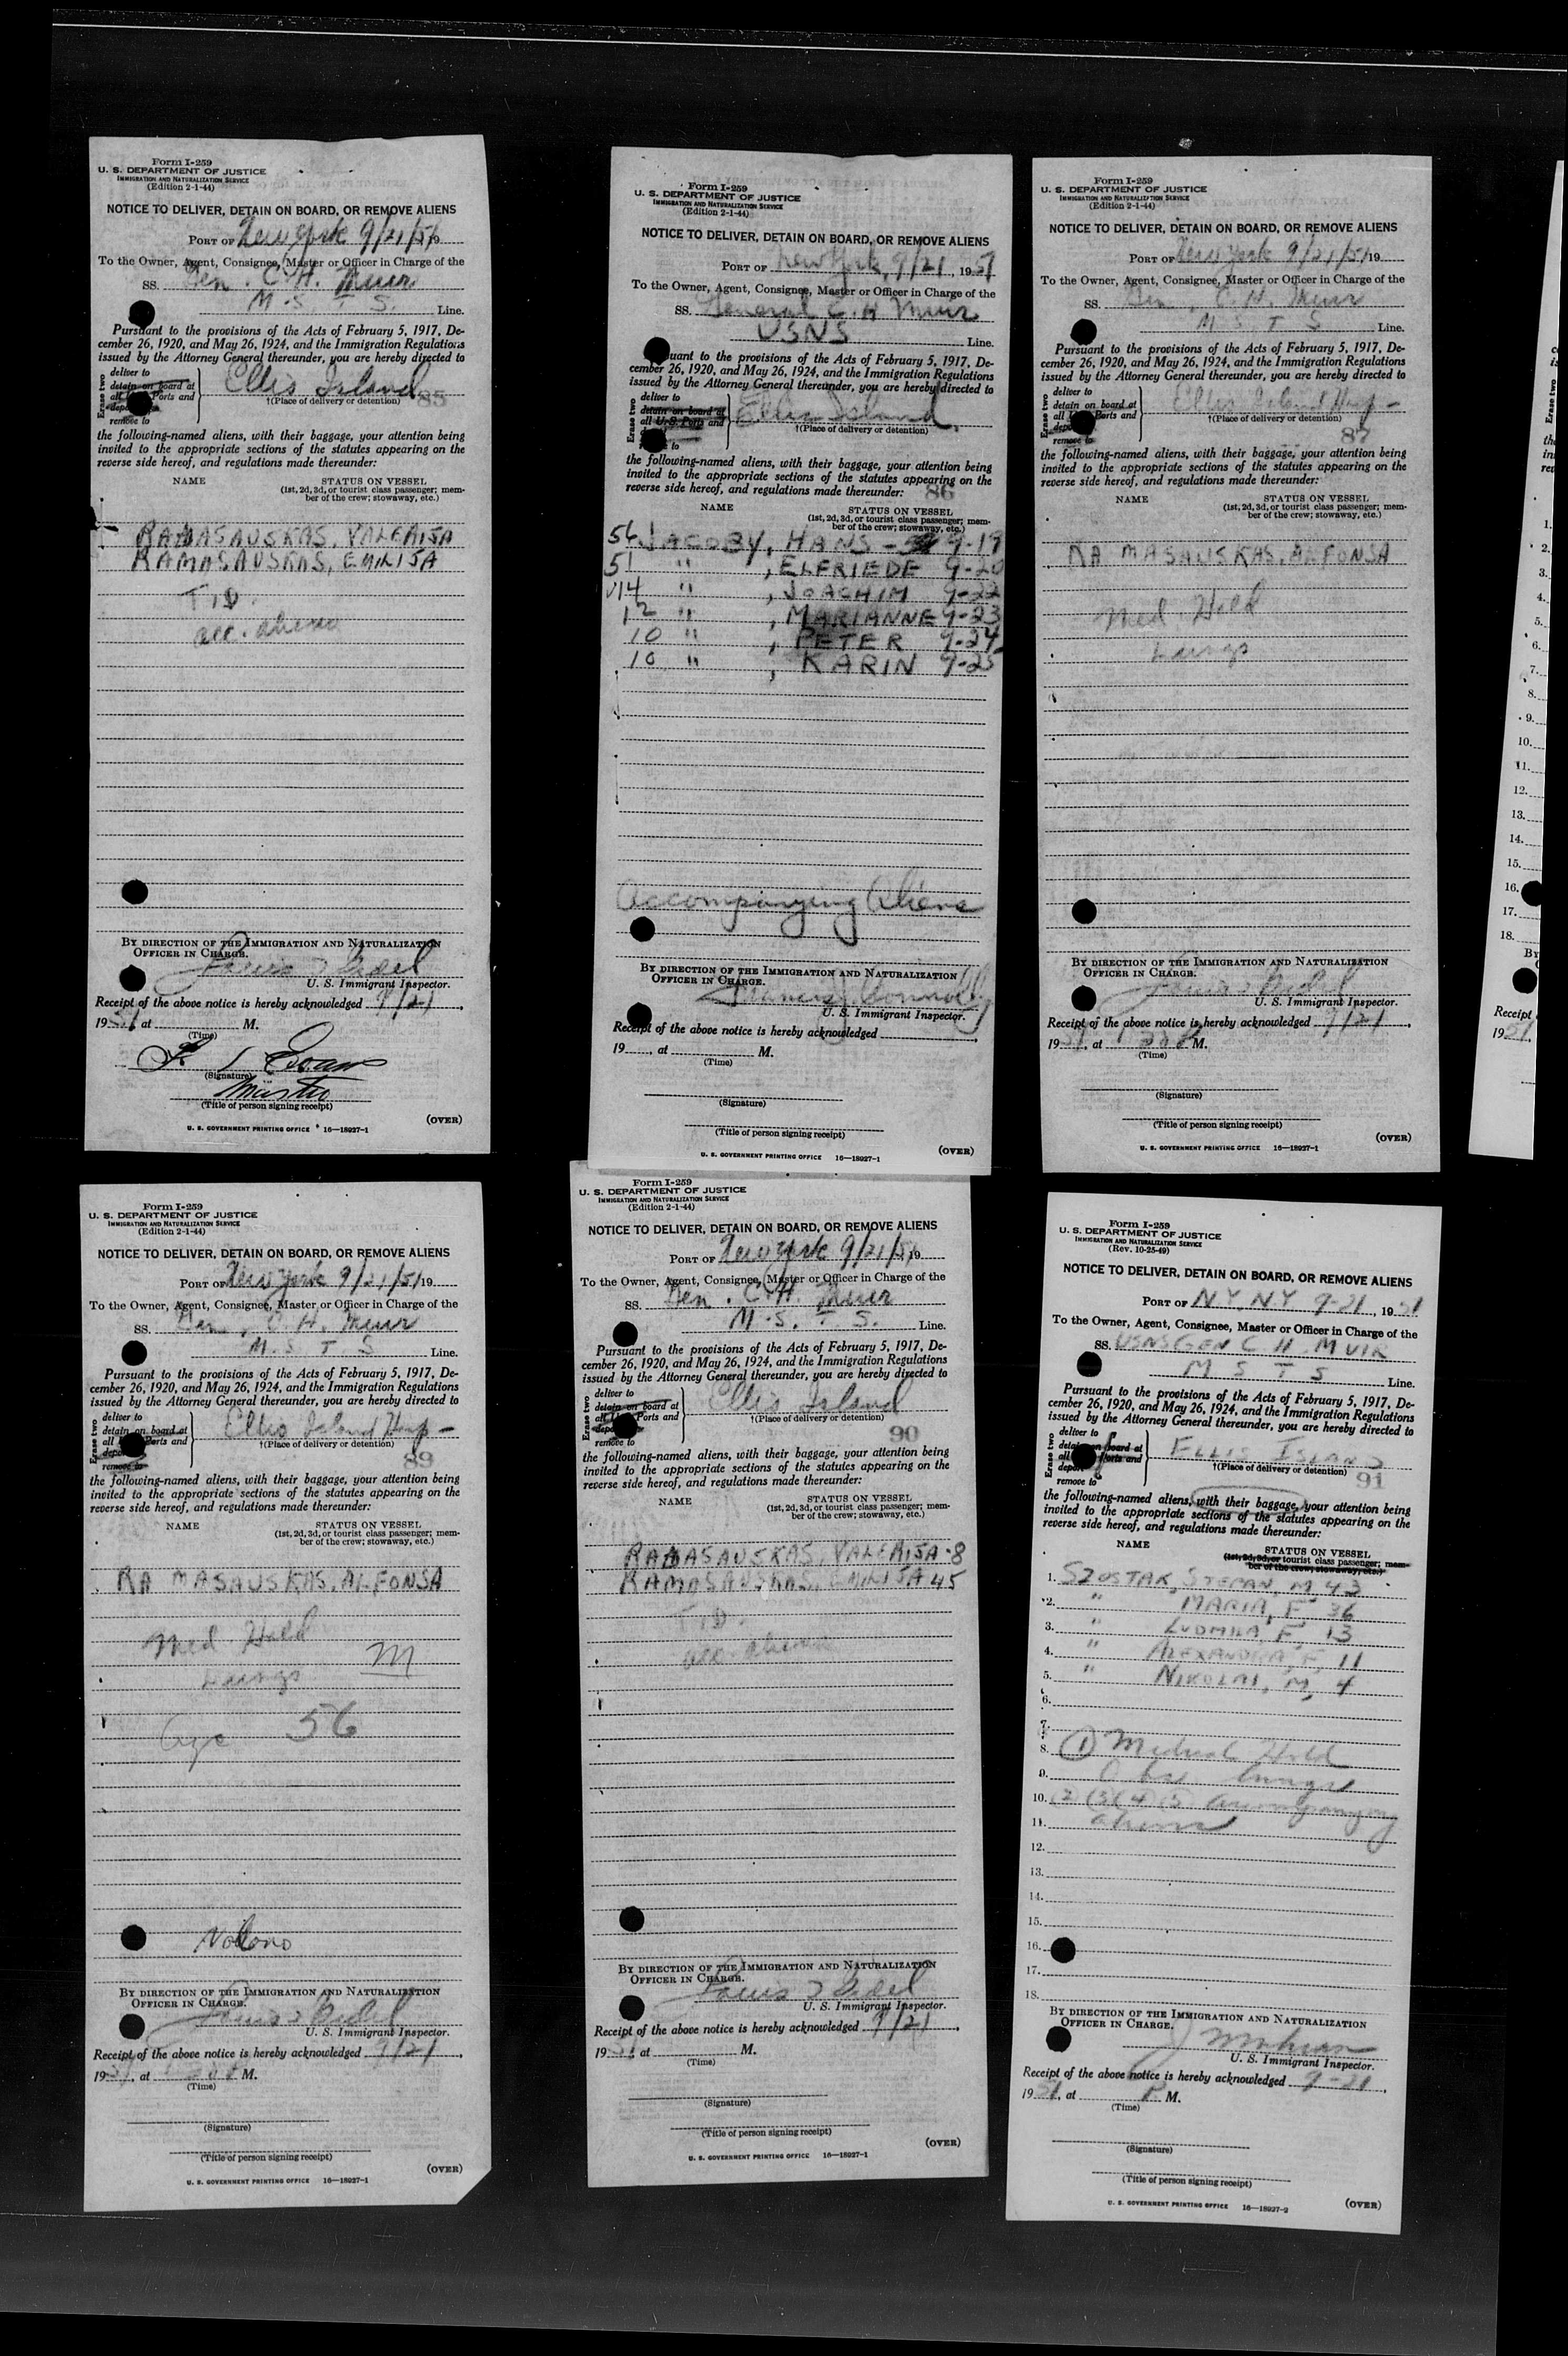 Form I-259
U. S. DEPARTMENT OF JUSTICE
IMMIGRATION AND NATURALIZATION SERVICE
(Edition 2-1-44)
NOTICE TO DELIVER, DETAIN ON BOARD, OR REMOVE ALIENS
PORT OF New York 9/21/51 19
To the Owner, Agent, Consignee, Master or Officer in Charge of the
SS. Gen. C. H. Muir
M. S. T. S. Line.
Pursuant to the provisions of the Acts of February 5, 1917, De-
cember 26, 1920, and May 26, 1924, and the Immigration Regulations
issued by the Attorney General thereunder, you are hereby directed to
Erase two
deliver to
detain on board at
all Ports and
remove to
Ellis Island
†(Place of delivery or detention) 85
the following-named aliens, with their baggage, your attention being
invited to the appropriate sections of the statutes appearing on the
reverse side hereof, and regulations made thereunder:
NAME STATUS ON VESSEL
(1st, 2d, 3d, or tourist class passenger; mem-
ber of the crew; stowaway, etc.)
RAMASAUSKAS, VALERIJA
RAMASAUSKAS, EMILIJA
T.D.
acc. aliens
BY DIRECTION OF THE IMMIGRATION AND NATURALIZATION
OFFICER IN CHARGE.
U. S. Immigrant Inspector.
Receipt of the above notice is hereby acknowledged 9/21
1951 at M.
(Time)
Evans
(Signature)
Master
(Title of person signing receipt)
(OVER)
U. S. GOVERNMENT PRINTING OFFICE 16—18927-1
Form I-259
U. S. DEPARTMENT OF JUSTICE
IMMIGRATION AND NATURALIZATION SERVICE
(Edition 2-1-44)
NOTICE TO DELIVER, DETAIN ON BOARD, OR REMOVE ALIENS
PORT OF New York, 9/21, 1951
To the Owner, Agent, Consignee, Master or Officer in Charge of the
SS. General C. H Muir
USNS Line.
Pursuant to the provisions of the Acts of February 5, 1917, De-
cember 26, 1920, and May 26, 1924, and the Immigration Regulations
issued by the Attorney General thereunder, you are hereby directed to
Erase two
deliver to
detain on board at
all U.S. Ports and
to
Ellis Island,
†(Place of delivery or detention)
the following-named aliens, with their baggage, your attention being
invited to the appropriate sections of the statutes appearing on the
reverse side hereof, and regulations made thereunder: 86
NAME STATUS ON VESSEL
(1st, 2d, 3d, or tourist class passenger; mem-
ber of the crew; stowaway, etc.)
56 JACOBY, HANS - 9-19
51 " , ELFRIEDE 9-20
14 " , JOACHIM 9-22
12 " , MARIANNE 9-23
10 " , PETER 9-24
10 " , KARIN 9-25
Accompanying Aliens
BY DIRECTION OF THE IMMIGRATION AND NATURALIZATION
OFFICER IN CHARGE.
Francis J. Connolly
U. S. Immigrant Inspector.
Receipt of the above notice is hereby acknowledged
19 , at M.
(Time)
(Signature)
(Title of person signing receipt)
(OVER)
U. S. GOVERNMENT PRINTING OFFICE 16—18927-1
Form I-259
U. S. DEPARTMENT OF JUSTICE
IMMIGRATION AND NATURALIZATION SERVICE
(Edition 2-1-44)
NOTICE TO DELIVER, DETAIN ON BOARD, OR REMOVE ALIENS
PORT OF New York 9/21/51 19
To the Owner, Agent, Consignee, Master or Officer in Charge of the
SS. Gen. C. H. Muir
M S T S Line.
Pursuant to the provisions of the Acts of February 5, 1917, De-
cember 26, 1920, and May 26, 1924, and the Immigration Regulations
issued by the Attorney General thereunder, you are hereby directed to
Erase two
deliver to
detain on board at
all Ports and
remove to
Ellis Island Hosp-
†(Place of delivery or detention)
87
the following-named aliens, with their baggage, your attention being
invited to the appropriate sections of the statutes appearing on the
reverse side hereof, and regulations made thereunder:
NAME STATUS ON VESSEL
(1st, 2d, 3d, or tourist class passenger; mem-
ber of the crew; stowaway, etc.)
RAMASAUSKAS, ALFONSA
Med. Hold
Lungs
BY DIRECTION OF THE IMMIGRATION AND NATURALIZATION
OFFICER IN CHARGE.
U. S. Immigrant Inspector.
Receipt of the above notice is hereby acknowledged 9/21
1951, at M.
(Time)
(Signature)
(Title of person signing receipt)
(OVER)
U. S. GOVERNMENT PRINTING OFFICE 16—18927-1
Form I-259
U. S. DEPARTMENT OF JUSTICE
IMMIGRATION AND NATURALIZATION SERVICE
(Edition 2-1-44)
NOTICE TO DELIVER, DETAIN ON BOARD, OR REMOVE ALIENS
PORT OF New York 9/21/51 19
To the Owner, Agent, Consignee, Master or Officer in Charge of the
SS. Gen. C. H. Muir
M. S T S Line.
Pursuant to the provisions of the Acts of February 5, 1917, De-
cember 26, 1920, and May 26, 1924, and the Immigration Regulations
issued by the Attorney General thereunder, you are hereby directed to
Erase two
deliver to
detain on board at
all Ports and
remove to
Ellis Island Hosp-
†(Place of delivery or detention)
89
the following-named aliens, with their baggage, your attention being
invited to the appropriate sections of the statutes appearing on the
reverse side hereof, and regulations made thereunder:
NAME STATUS ON VESSEL
(1st, 2d, 3d, or tourist class passenger; mem-
ber of the crew; stowaway, etc.)
RAMASAUSKAS, ALFONSA
Med. Hold
Lungs M
Age 56
BY DIRECTION OF THE IMMIGRATION AND NATURALIZATION
OFFICER IN CHARGE.
U. S. Immigrant Inspector.
Receipt of the above notice is hereby acknowledged 9/21
1951, at M.
(Time)
(Signature)
(Title of person signing receipt)
(OVER)
U. S. GOVERNMENT PRINTING OFFICE 16—18927-1
Form I-259
U. S. DEPARTMENT OF JUSTICE
IMMIGRATION AND NATURALIZATION SERVICE
(Edition 2-1-44)
NOTICE TO DELIVER, DETAIN ON BOARD, OR REMOVE ALIENS
PORT OF New York 9/21/51 19
To the Owner, Agent, Consignee, Master or Officer in Charge of the
SS. Gen. C. H. Muir
M. S. T. S. Line.
Pursuant to the provisions of the Acts of February 5, 1917, De-
cember 26, 1920, and May 26, 1924, and the Immigration Regulations
issued by the Attorney General thereunder, you are hereby directed to
Erase two
deliver to
detain on board at
all Ports and
remove to
Ellis Island
†(Place of delivery or detention)
90
the following-named aliens, with their baggage, your attention being
invited to the appropriate sections of the statutes appearing on the
reverse side hereof, and regulations made thereunder:
NAME STATUS ON VESSEL
(1st, 2d, 3d, or tourist class passenger; mem-
ber of the crew; stowaway, etc.)
RAMASAUSKAS, VALERIJA-8
RAMASAUSKAS, EMILIJA 45
T.D.
acc. aliens
BY DIRECTION OF THE IMMIGRATION AND NATURALIZATION
OFFICER IN CHARGE.
U. S. Immigrant Inspector.
Receipt of the above notice is hereby acknowledged 9/21
1951, at M.
(Time)
(Signature)
(Title of person signing receipt)
(OVER)
U. S. GOVERNMENT PRINTING OFFICE 16—18927-1
Form I-259
U. S. DEPARTMENT OF JUSTICE
IMMIGRATION AND NATURALIZATION SERVICE
(Rev. 10-25-49)
NOTICE TO DELIVER, DETAIN ON BOARD, OR REMOVE ALIENS
PORT OF N.Y. N.Y 9-21, 1951
To the Owner, Agent, Consignee, Master or Officer in Charge of the
SS. USNS GEN C. H. MUIR
M S T S Line.
Pursuant to the provisions of the Acts of February 5, 1917, De-
cember 26, 1920, and May 26, 1924, and the Immigration Regulations
issued by the Attorney General thereunder, you are hereby directed to
Erase two
deliver to
detain on board at
all Ports and
remove to
ELLIS ISLAND
†(Place of delivery or detention)
91
the following-named aliens, with their baggage, your attention being
invited to the appropriate sections of the statutes appearing on the
reverse side hereof, and regulations made thereunder:
NAME STATUS ON VESSEL
(1st, 2d, 3d, or tourist class passenger; mem-
ber of the crew; stowaway, etc.)
1. SZOSTAK, STEPAN, M, 43
2. " MARIA, F 36
3. " LUDMILA, F, 13
4. " ALEXANDRA, F, 11
5. " NIKOLAI, M, 4
6.
7.
8. (1) Medical Hold
9. Obs. lungs
10. (2) (3) (4) (5) accompanying
11. aliens
12.
13.
14.
15.
16.
17.
18.
BY DIRECTION OF THE IMMIGRATION AND NATURALIZATION
OFFICER IN CHARGE.
U. S. Immigrant Inspector.
Receipt of the above notice is hereby acknowledged 9-21,
1951, at P. M.
(Time)
(Signature)
(Title of person signing receipt)
(OVER)
U. S. GOVERNMENT PRINTING OFFICE 16—18927-2
1.
2.
3.
4.
5.
6.
7.
8.
9.
10.
11.
12.
13.
14.
15.
16.
17.
18.
By
Receipt
1951